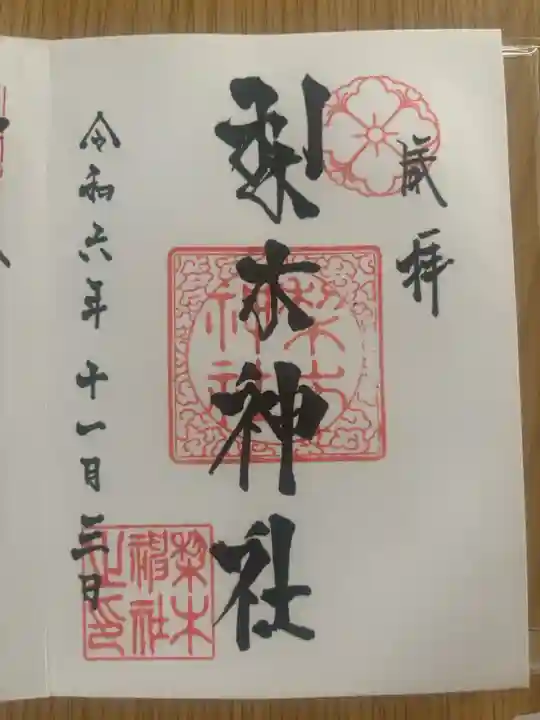 奉拝
梨木神社
令和六年十一月三日
梨木
神社
梨木
神社
之印